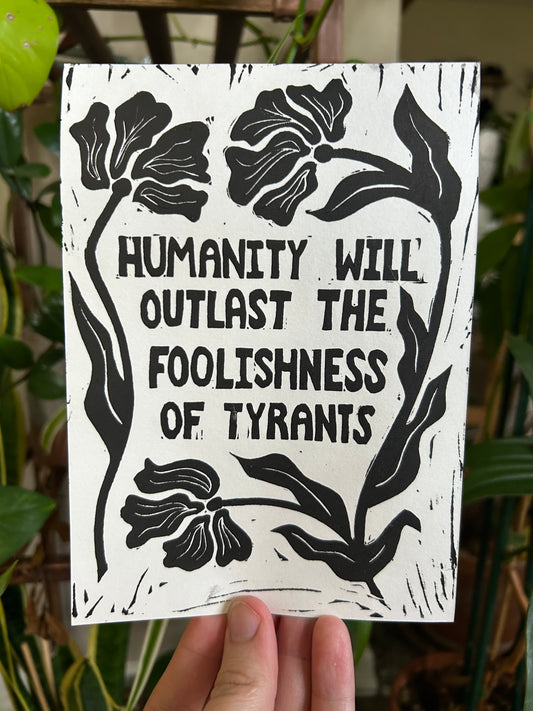 HUMANITY WILL
OUTLAST THE
FOOLISHNESS
OF TYRANTS